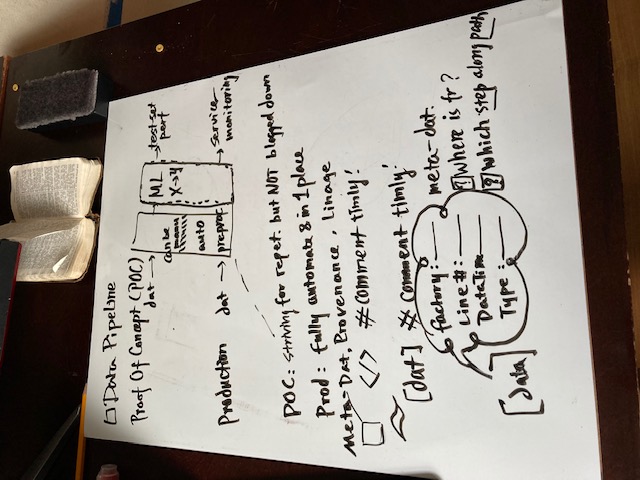 □ Data Pipeline
Proof Of Concept (POC)
dat →
can be
manu
auto
preproc
ML
X→y
→ test-set
perf
Production dat →
→ Service
monitoring
POC: striving for repet. but NOT blogged down
Prod: fully automate & in 1 place
Meta-Dat, Provenance, Linage
</> #comment timly!
[dat] # comment timly!
factory:
Line #:
DataTim
Type:
[data]
meta-dat.
? where is fr?
? which step along path